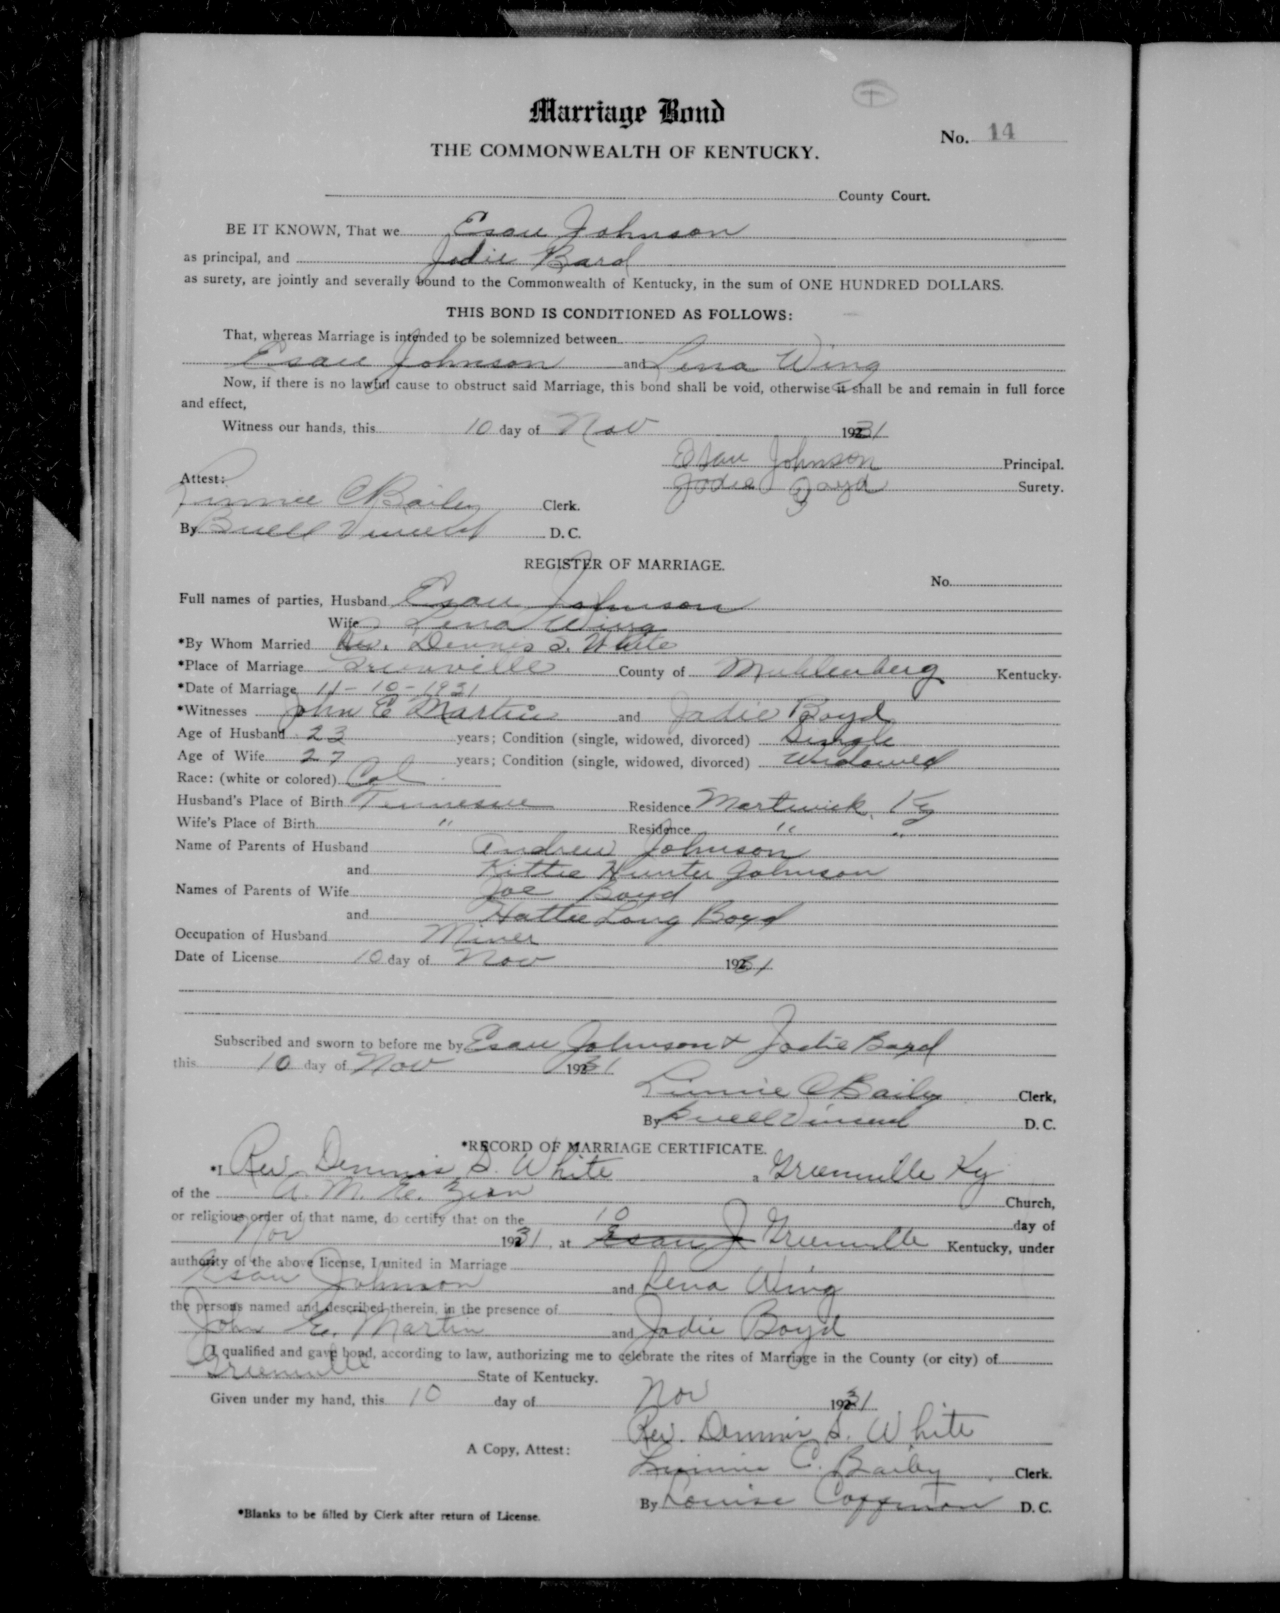 T
Marriage Bond
No. 14
THE COMMONWEALTH OF KENTUCKY.
County Court.
BE IT KNOWN, That we Esau Johnson
as principal, and Jodie Bard
as surety, are jointly and severally bound to the Commonwealth of Kentucky, in the sum of ONE HUNDRED DOLLARS.
THIS BOND IS CONDITIONED AS FOLLOWS:
That, whereas Marriage is intended to be solemnized between
Esau Johnson and Lena Wing
Now, if there is no lawful cause to obstruct said Marriage, this bond shall be void, otherwise it shall be and remain in full force
and effect,
Witness our hands, this 10 day of Nov 1931
Esau Johnson Principal.
Attest: Jodie Boyd Surety.
Linnie C Bailey Clerk.
By Buell Vincent D. C.
REGISTER OF MARRIAGE.
No.
Full names of parties, Husband Esau Johnson
Wife Lena Wing
*By Whom Married Rev. Dennis S. White
*Place of Marriage Greenville County of Muhlenberg Kentucky.
*Date of Marriage 11-10-1931
*Witnesses John E Martin and Jodie Boyd
Age of Husband 23 years; Condition (single, widowed, divorced) Single
Age of Wife 27 years; Condition (single, widowed, divorced) Widowed
Race: (white or colored) Col
Husband's Place of Birth Tennessee Residence Martwick, Ky
Wife's Place of Birth " Residence " "
Name of Parents of Husband Andrew Johnson
and Kittie Hunter Johnson
Names of Parents of Wife Joe Boyd
and Hattie Long Boyd
Occupation of Husband Miner
Date of License 10 day of Nov 1931
Subscribed and sworn to before me by Esau Johnson + Jodie Boyd
this 10 day of Nov 1931
Linnie C Bailey Clerk,
By Buell Vincent D. C.
*RECORD OF MARRIAGE CERTIFICATE.
*I Rev. Dennis S. White, Greenville Ky
of the A. M. E. Zion Church,
or religious order of that name, do certify that on the 10 day of
Nov 1931, at Esau J Greenville Kentucky, under
authority of the above license, I united in Marriage
Esau Johnson and Lena Wing
the persons named and described therein, in the presence of
John E. Martin and Jodie Boyd
I qualified and gave bond, according to law, authorizing me to celebrate the rites of Marriage in the County (or city) of
Greenville State of Kentucky.
Given under my hand, this 10 day of Nov 1931
Rev. Dennis S. White
A Copy, Attest:
Linnie C. Bailey Clerk.
By Louise Coffman D. C.
*Blanks to be filled by Clerk after return of License.